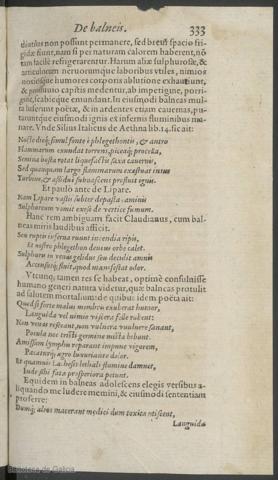 De balneis. 333
diutius non possunt permanere, sed breui spacio frigidæ fiunt, nam si per naturam calorem haberent, nō
tam facile refrigerarentur. Harum aliæ sulphurosæ, &
articulorum neruorumque laboribus vtiles, nimios
noxiosque humores corporis ablutione exhauriunt,
& potissimo capitis medentur, ab impetigine, porrigine, scabieque emundant. In eiusmodi balneas multa luserunt poëtæ, & in ardentes etiam cauernas, putaruntque eiusmodi ignis ex infernis fluminibus manare. Vnde Silius Italicus de Aethna lib.14. sic ait:
Nocte dieq; simul fonte è phlegethontis, & antro
Flammarum exundat torrens, piceaq; procella,
Semina busta rotat liquefactis saxa cauernis,
Sed quanquam largo flammarum exæstuat intus
Turbine, & assiduè subnascens profluit ignis.
Et paulo ante de Lipare.
Nam Lipare vastis subter depasta caminis
Sulphureum vomit exeso de vertice fumum.
Hanc rem ambiguam facit Claudianus, cum balneas miris laudibus afficit.
Seu ruptis inferna ruunt incendia ripis,
Et nostro phlegethon deuius orbe calet.
Sulphuris in venas gelidus seu decidit amnis
Accensusq; fluit, quod manifestat odor.
Vtcunq; tamen res se habeat, optimè consuluisse
humano generi natura videtur, quæ balneas protulit
ad salutem mortalium: de quibus idem poëta ait:
Quod si forte malus membris exuberat humor,
Languida vel nimio viscera felle rubent:
Non venas reserant, non vulnere vulnera sanant,
Pocula nec tristi germine mista bibunt.
Amissum lymphis reparant impune vigorem,
Pacaturq; ægro luxuriante dolor.
Et quamuis
Inde sibi fata prosperiora petunt.
Equidem in balneas adolescens elegis versibus aliquando me ludere memini, & eiusmodi sententiam
proferre:
Dumq; alios macerant medici dum toxica miscent,
Languida
Biblioteca de Galicia